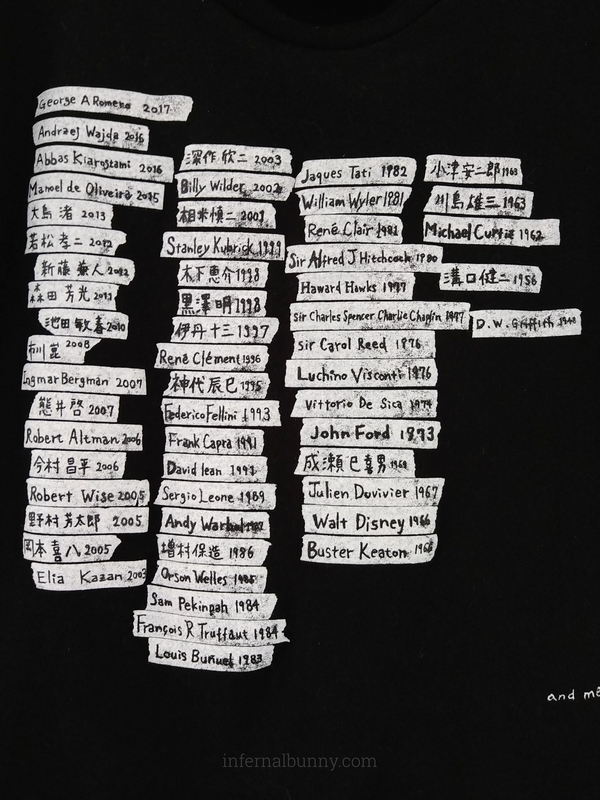 George A Romero 2017
Andrzej Wajda 2016
Abbas Kiarostami 2016
Manoel de Oliveira 2015
大島 渚 2013
若松 孝二 2012
新藤 兼人 2012
森田 芳光 2011
池田 敏春 2010
市川 崑 2008
Ingmar Bergman 2007
熊井 啓 2007
Robert Altman 2006
今村 昌平 2006
Robert Wise 2005
野村 芳太郎 2005
岡本 喜八 2005
Elia Kazan 2003
深作 欣二 2003
Billy Wilder 2002
相米慎二 2001
Stanley Kubrick 1999
木下 恵介 1998
黒澤 明 1998
伊丹 十三 1997
René Clément 1996
神代 辰巳 1995
Federico Fellini 1993
Frank Capra 1991
David lean 1991
Sergio Leone 1989
Andy Warhol 1987
増村 保造 1986
Orson Welles 1985
Sam Pekinpah 1984
François R Truffaut 1984
Louis Buñuel 1983
Jaques Tati 1982
William Wyler 1981
René Clair 1981
Sir Alfred J Hitchcock 1980
Haward Hawks 1977
sir Charles Spencer Charlie Chaplin 1977
sir Carol Reed 1976
Luchino Visconti 1976
Vittorio De Sica 1974
John Ford 1973
成瀬 巳喜男 1969
Julien Duvivier 1967
Walt Disney 1966
Buster Keaton 1966
小津 安二郎 1963
川島 雄三 1963
Michael Curtiz 1962
溝口 健二 1956
D.W. Griffith 1948
and
infernalbunny.com